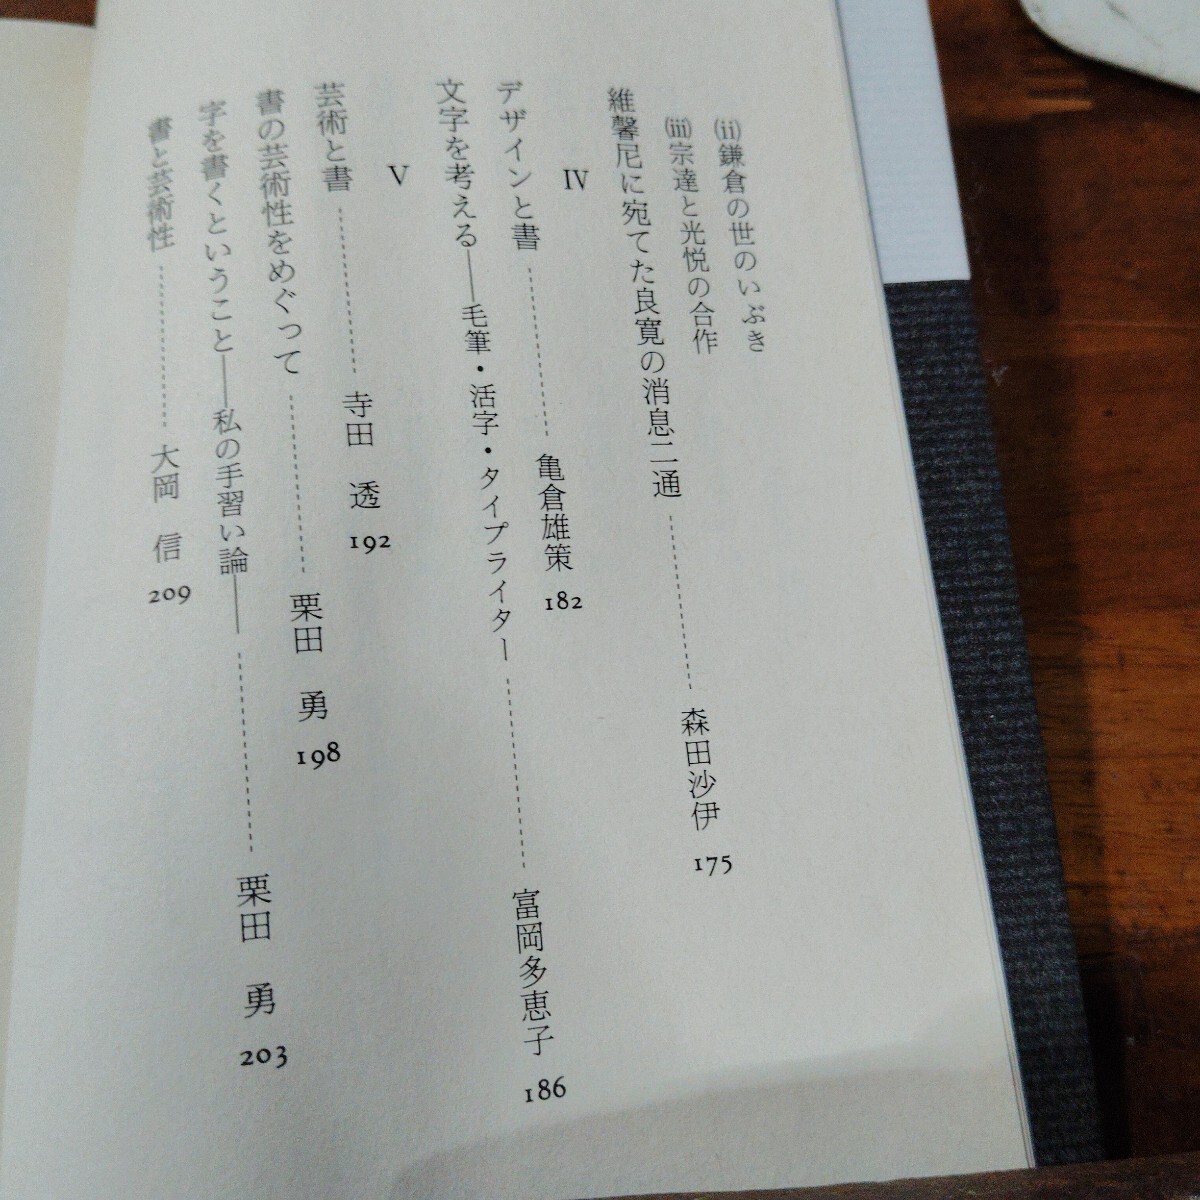 (ii)鎌倉の世のいぶき
(iii)宗達と光悦の合作
維馨尼に宛てた良寛の消息二通 森田沙伊 175
IV
デザインと書 亀倉雄策 182
文字を考える――毛筆・活字・タイプライター― 富岡多恵子 186
V
芸術と書 寺田 透 192
書の芸術性をめぐって 栗田 勇 198
字を書くということ――私の手習い論―― 栗田 勇 203
書と芸術性 大岡 信 209